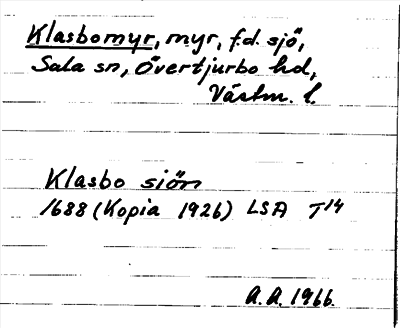 Klasbomyr, myr, f.d. sjö,
Sala sn, Övertjurbo hd,
Västm. l.
Klasbo siön
1688 (Kopia 1926) LSA T14
A.A. 1966.